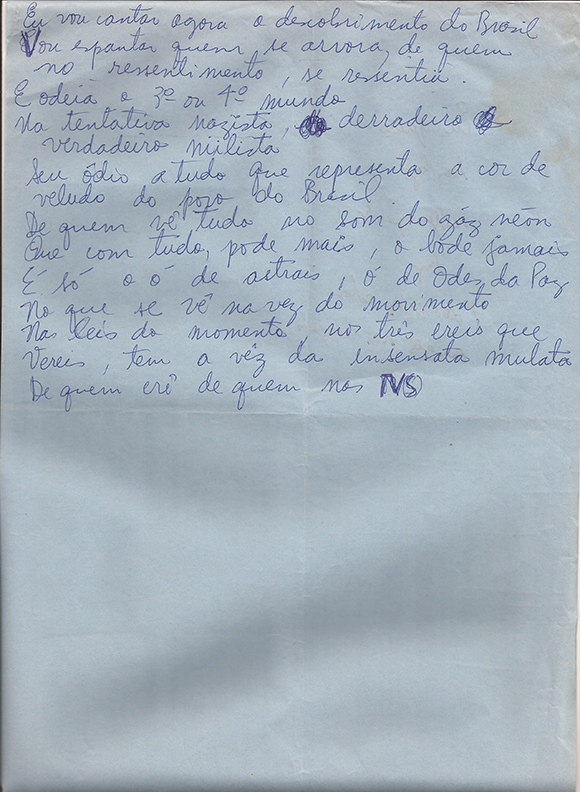 Eu vou cantar agora o descobrimento do Brasil
Vou espantar quem se arvora, de quem
no ressentimento, se ressentiu.
E odeia o 3º ou 4º mundo
Na tentativa nazista, derradeiro
verdadeiro niilista
Seu ódio a tudo que representa a cor de
veludo do povo do Brasil.
De quem vê tudo no som do gáz néon
Que com tudo, pode mais, o bode jamais
É só o ó de astrais, ó de Odes da Paz
No que se vê na vez do movimento
Nas leis do momento nos três ereis que
Vereis, tem a vêz da insensata mulata
De quem crê de quem nas TV(S)